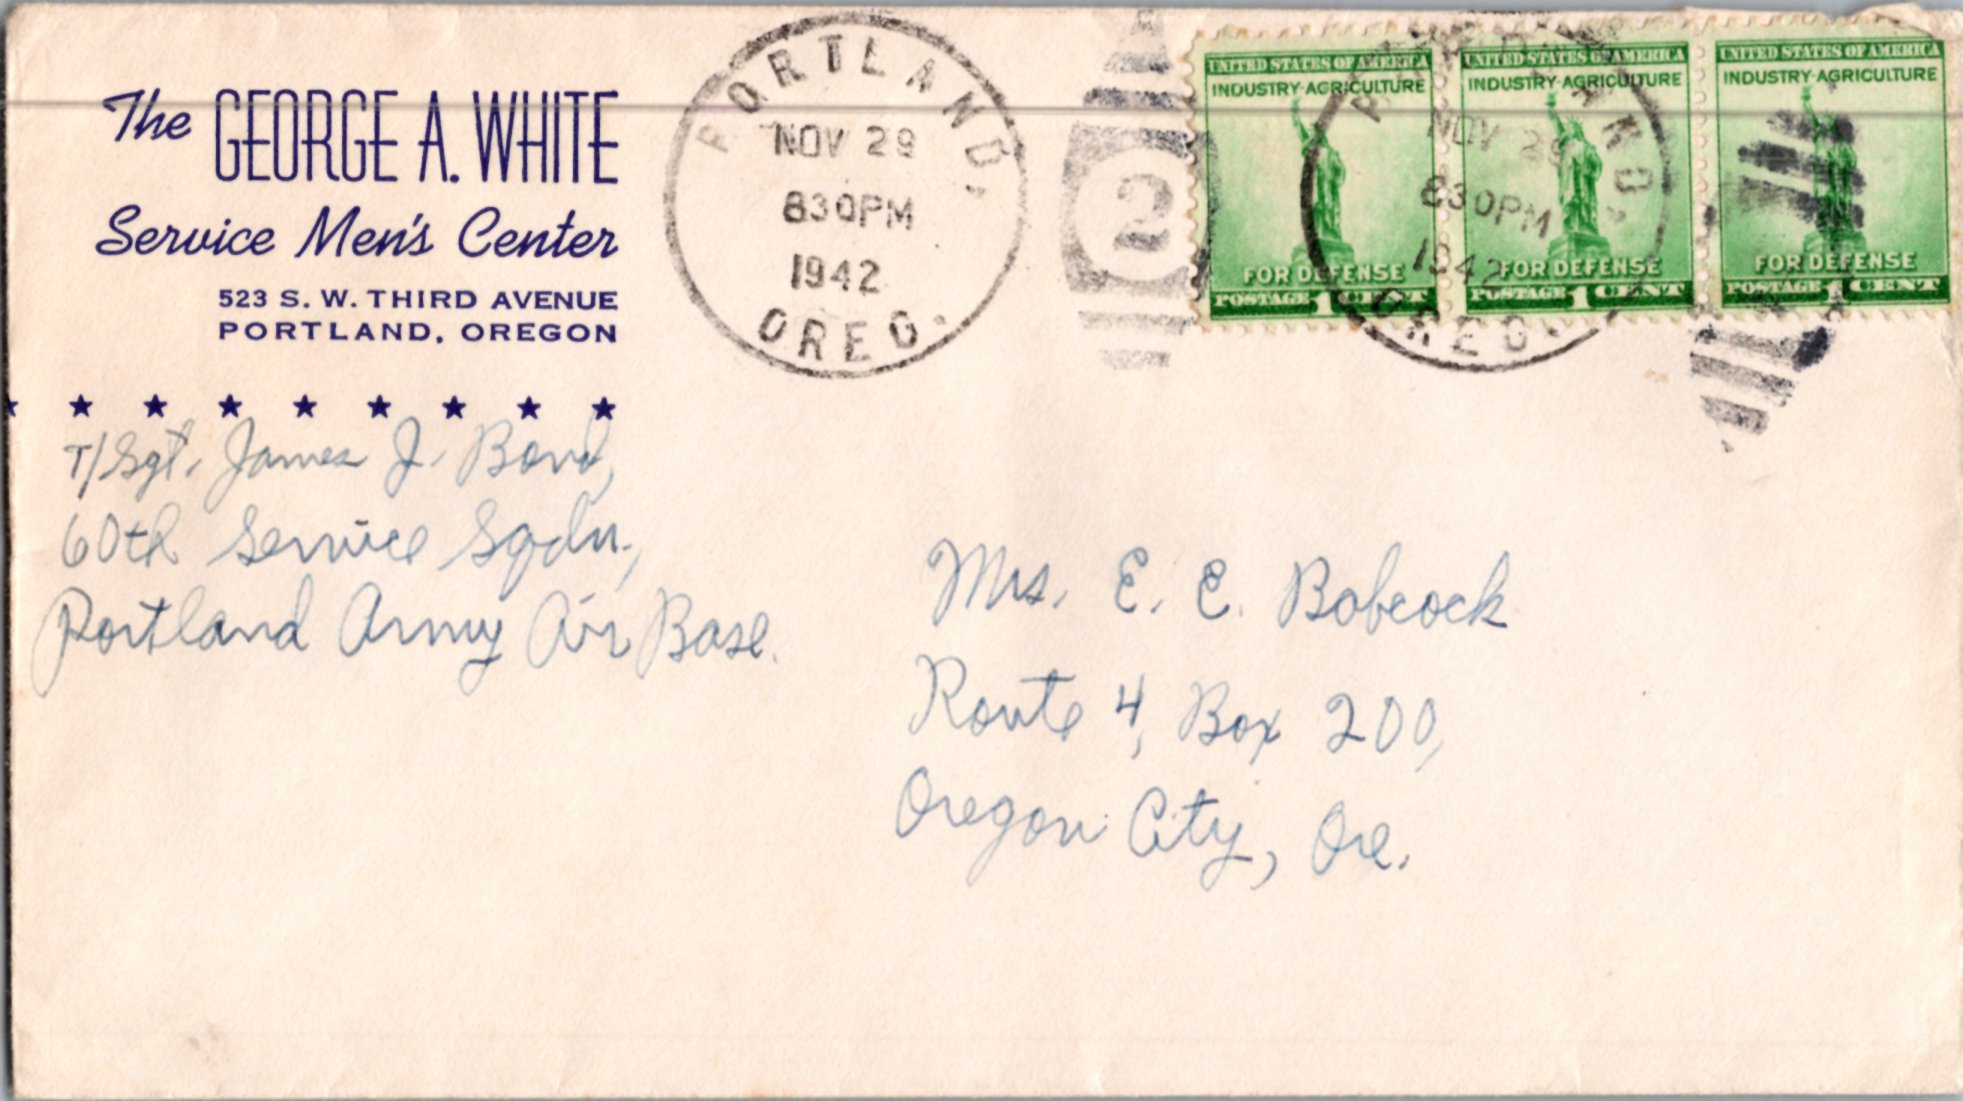 The GEORGE A. WHITE
Service Men's Center
523 S. W. THIRD AVENUE
PORTLAND, OREGON
T/Sgt. James J. Bond,
60th Service Sqdn.,
Portland Army Air Base.
PORTLAND,
NOV 29
830PM
1942
OREG.
2
UNITED STATES OF AMERICA
INDUSTRY·AGRICULTURE
FOR DEFENSE
POSTAGE 1 CENT
UNITED STATES OF AMERICA
INDUSTRY·AGRICULTURE
FOR DEFENSE
POSTAGE 1 CENT
UNITED STATES OF AMERICA
INDUSTRY·AGRICULTURE
FOR DEFENSE
POSTAGE 1 CENT
PORTLAND,
NOV 29
830PM
1942
OREG.
Mrs. E. E. Babcock
Route 4, Box 200,
Oregon City, Ore.